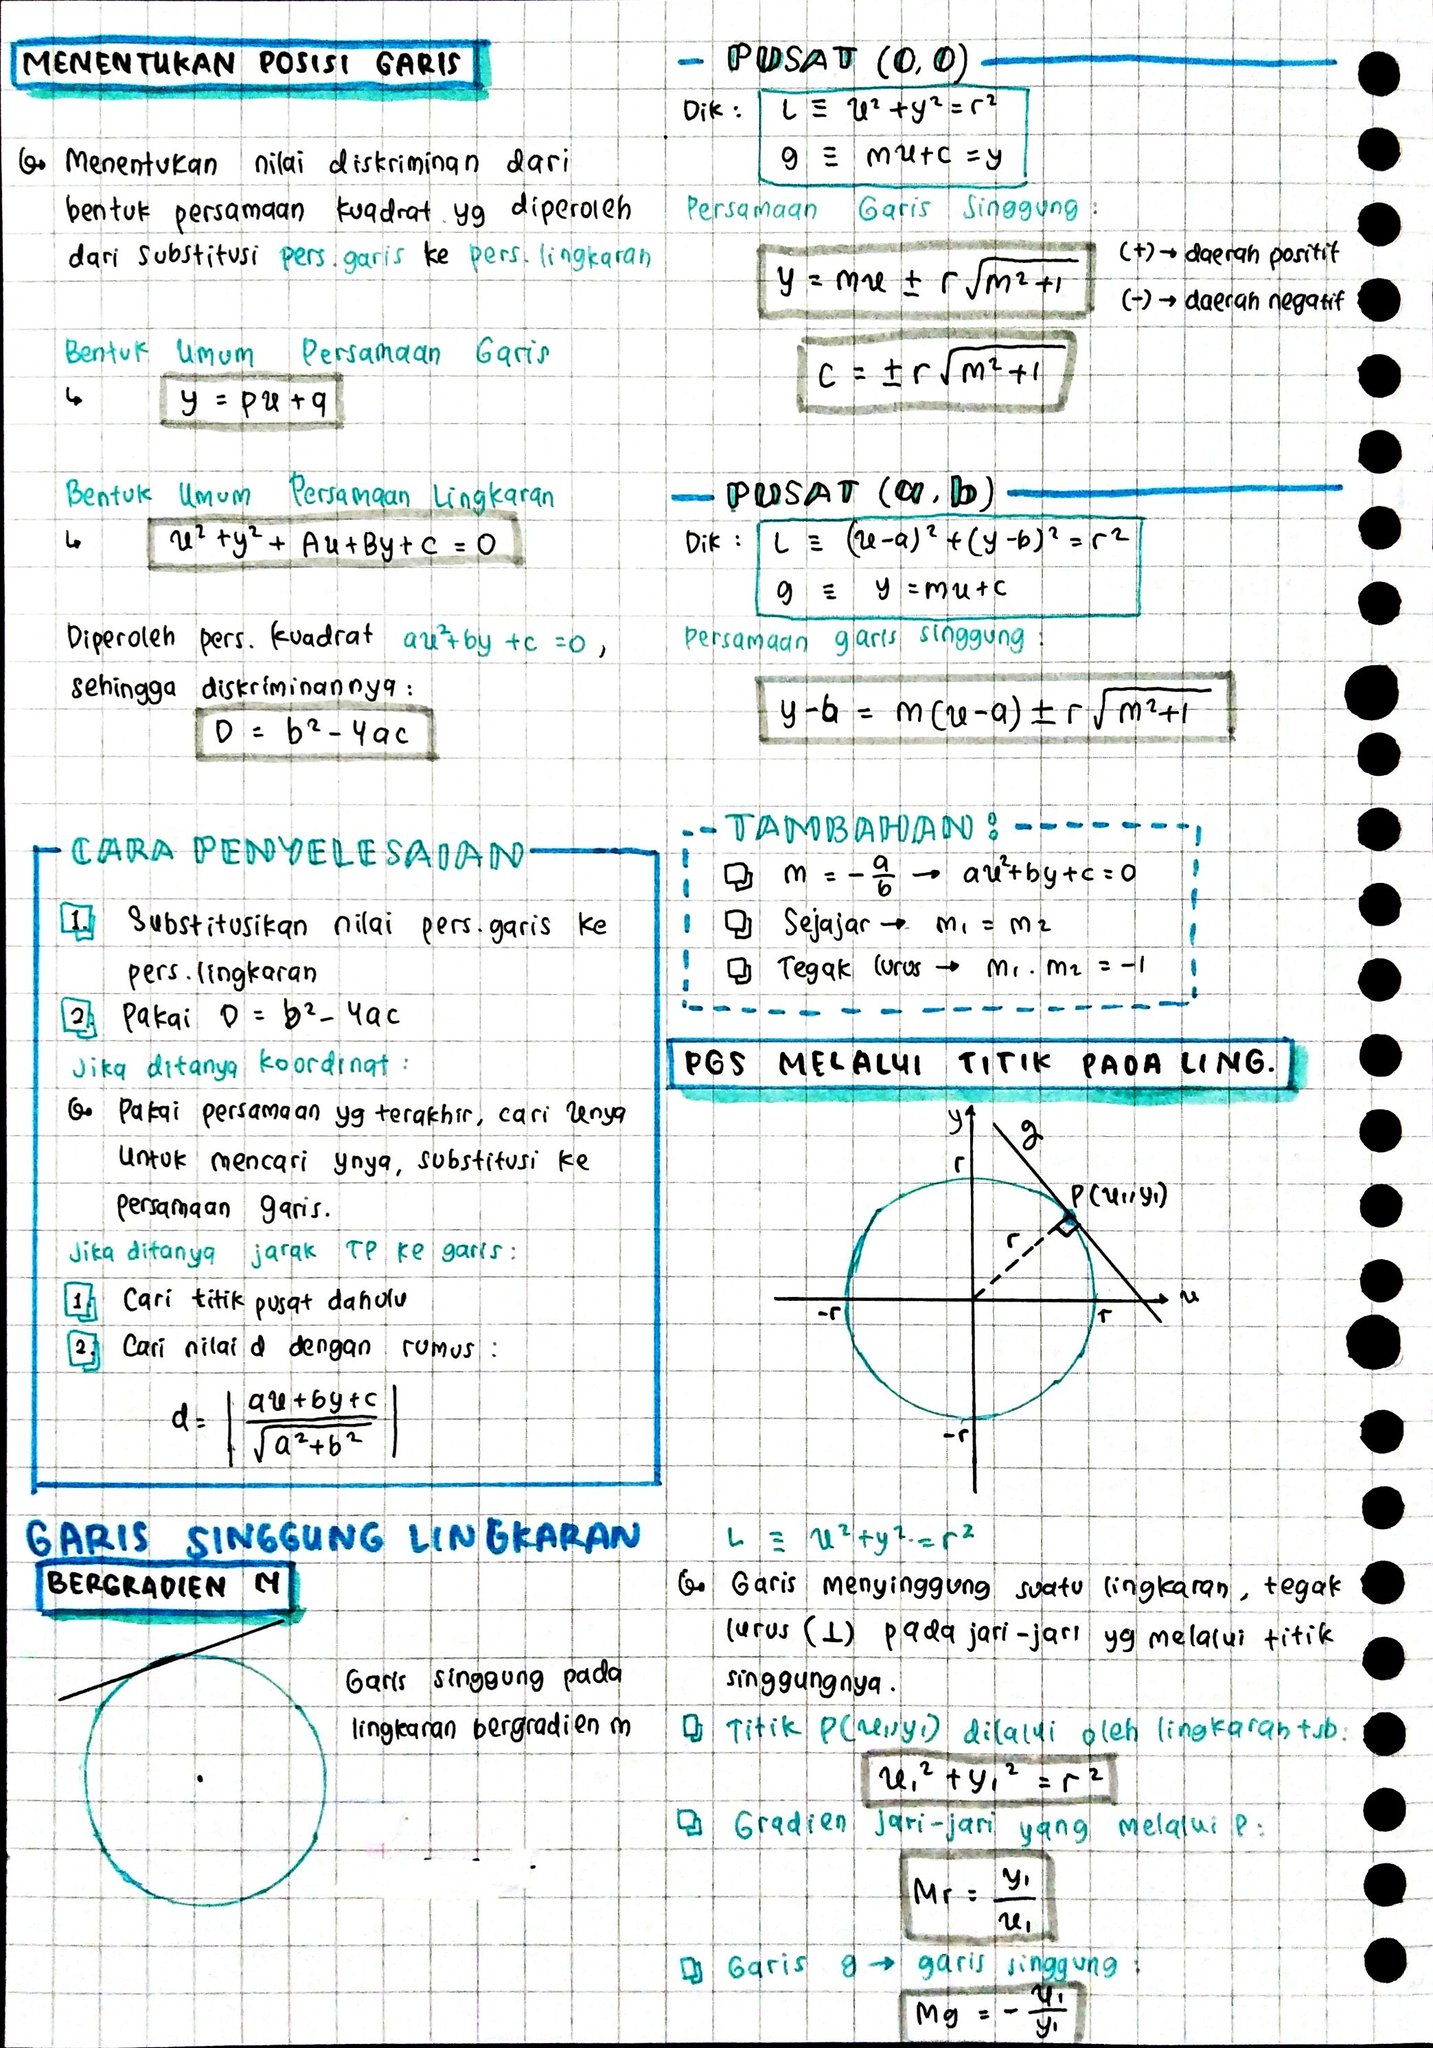 MENENTUKAN POSISI GARIS
Menentukan nilai diskriminan dari
bentuk persamaan kuadrat yg diperoleh
dari substitusi pers.garis ke pers.lingkaran
Bentuk Umum Persamaan Garis
↳ y = px + q
Bentuk Umum Persamaan Lingkaran
↳ x² + y² + Ax + By + c = 0
Diperoleh pers. kuadrat ax² + by + c = 0,
sehingga diskriminannya:
D = b² - 4ac
CARA PENYELESAIAN
1. Substitusikan nilai pers.garis ke
pers.lingkaran
2. Pakai D = b² - 4ac
Jika ditanya koordinat:
Pakai persamaan yg terakhir, cari xnya
untuk mencari ynya, substitusi ke
persamaan garis.
Jika ditanya jarak TP ke garis:
1. Cari titik pusat dahulu
2. Cari nilai d dengan rumus:
d = | (ax + by + c) / √(a² + b²) |
GARIS SINGGUNG LINGKARAN
BERGRADIEN M
Garis singgung pada
lingkaran bergradien m
PUSAT (0,0)
Dik: L ≡ x² + y² = r²
g ≡ mx + c = y
Persamaan Garis Singgung:
y = mx ± r√(m² + 1)
(+) → daerah positif
(-) → daerah negatif
c = ± r√(m² + 1)
PUSAT (a, b)
Dik: L ≡ (x-a)² + (y-b)² = r²
g ≡ y = mx + c
Persamaan garis singgung:
y - b = m(x - a) ± r√(m² + 1)
TAMBAHAN:
m = -a/b → ax² + by + c = 0
Sejajar → m₁ = m₂
Tegak lurus → m₁ . m₂ = -1
PGS MELALUI TITIK PADA LING.
y
g
r
P(x₁,y₁)
r
-r
r
x
-r
L ≡ x² + y² = r²
Garis menyinggung suatu lingkaran, tegak
lurus (⊥) pada jari-jari yg melalui titik
singgungnya.
Titik P(x₁,y₁) dilalui oleh lingkaran tsb:
x₁² + y₁² = r²
Gradien jari-jari yang melalui P:
Mr = y₁/x₁
Garis g → garis singgung:
Mg = - x₁/y₁